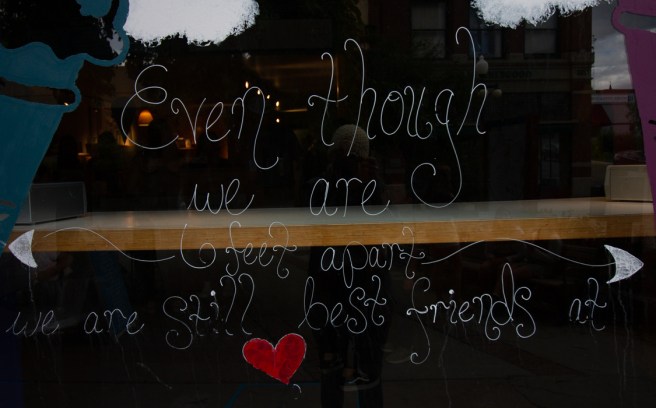 Even though
we are
6 feet apart
we are still best friends at